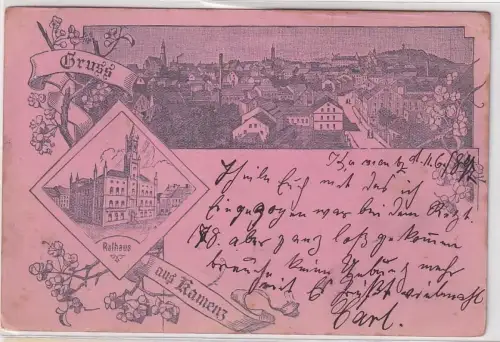 Gruss
Rathaus
aus Kamenz
Kamenz d. 11.6.
Theile Euch mit das ich
Eingezogen war bei dem Regt.
178. aber ganz loß gekommen
brauche keine Uebung mehr
mit
vielmahl
Carl.